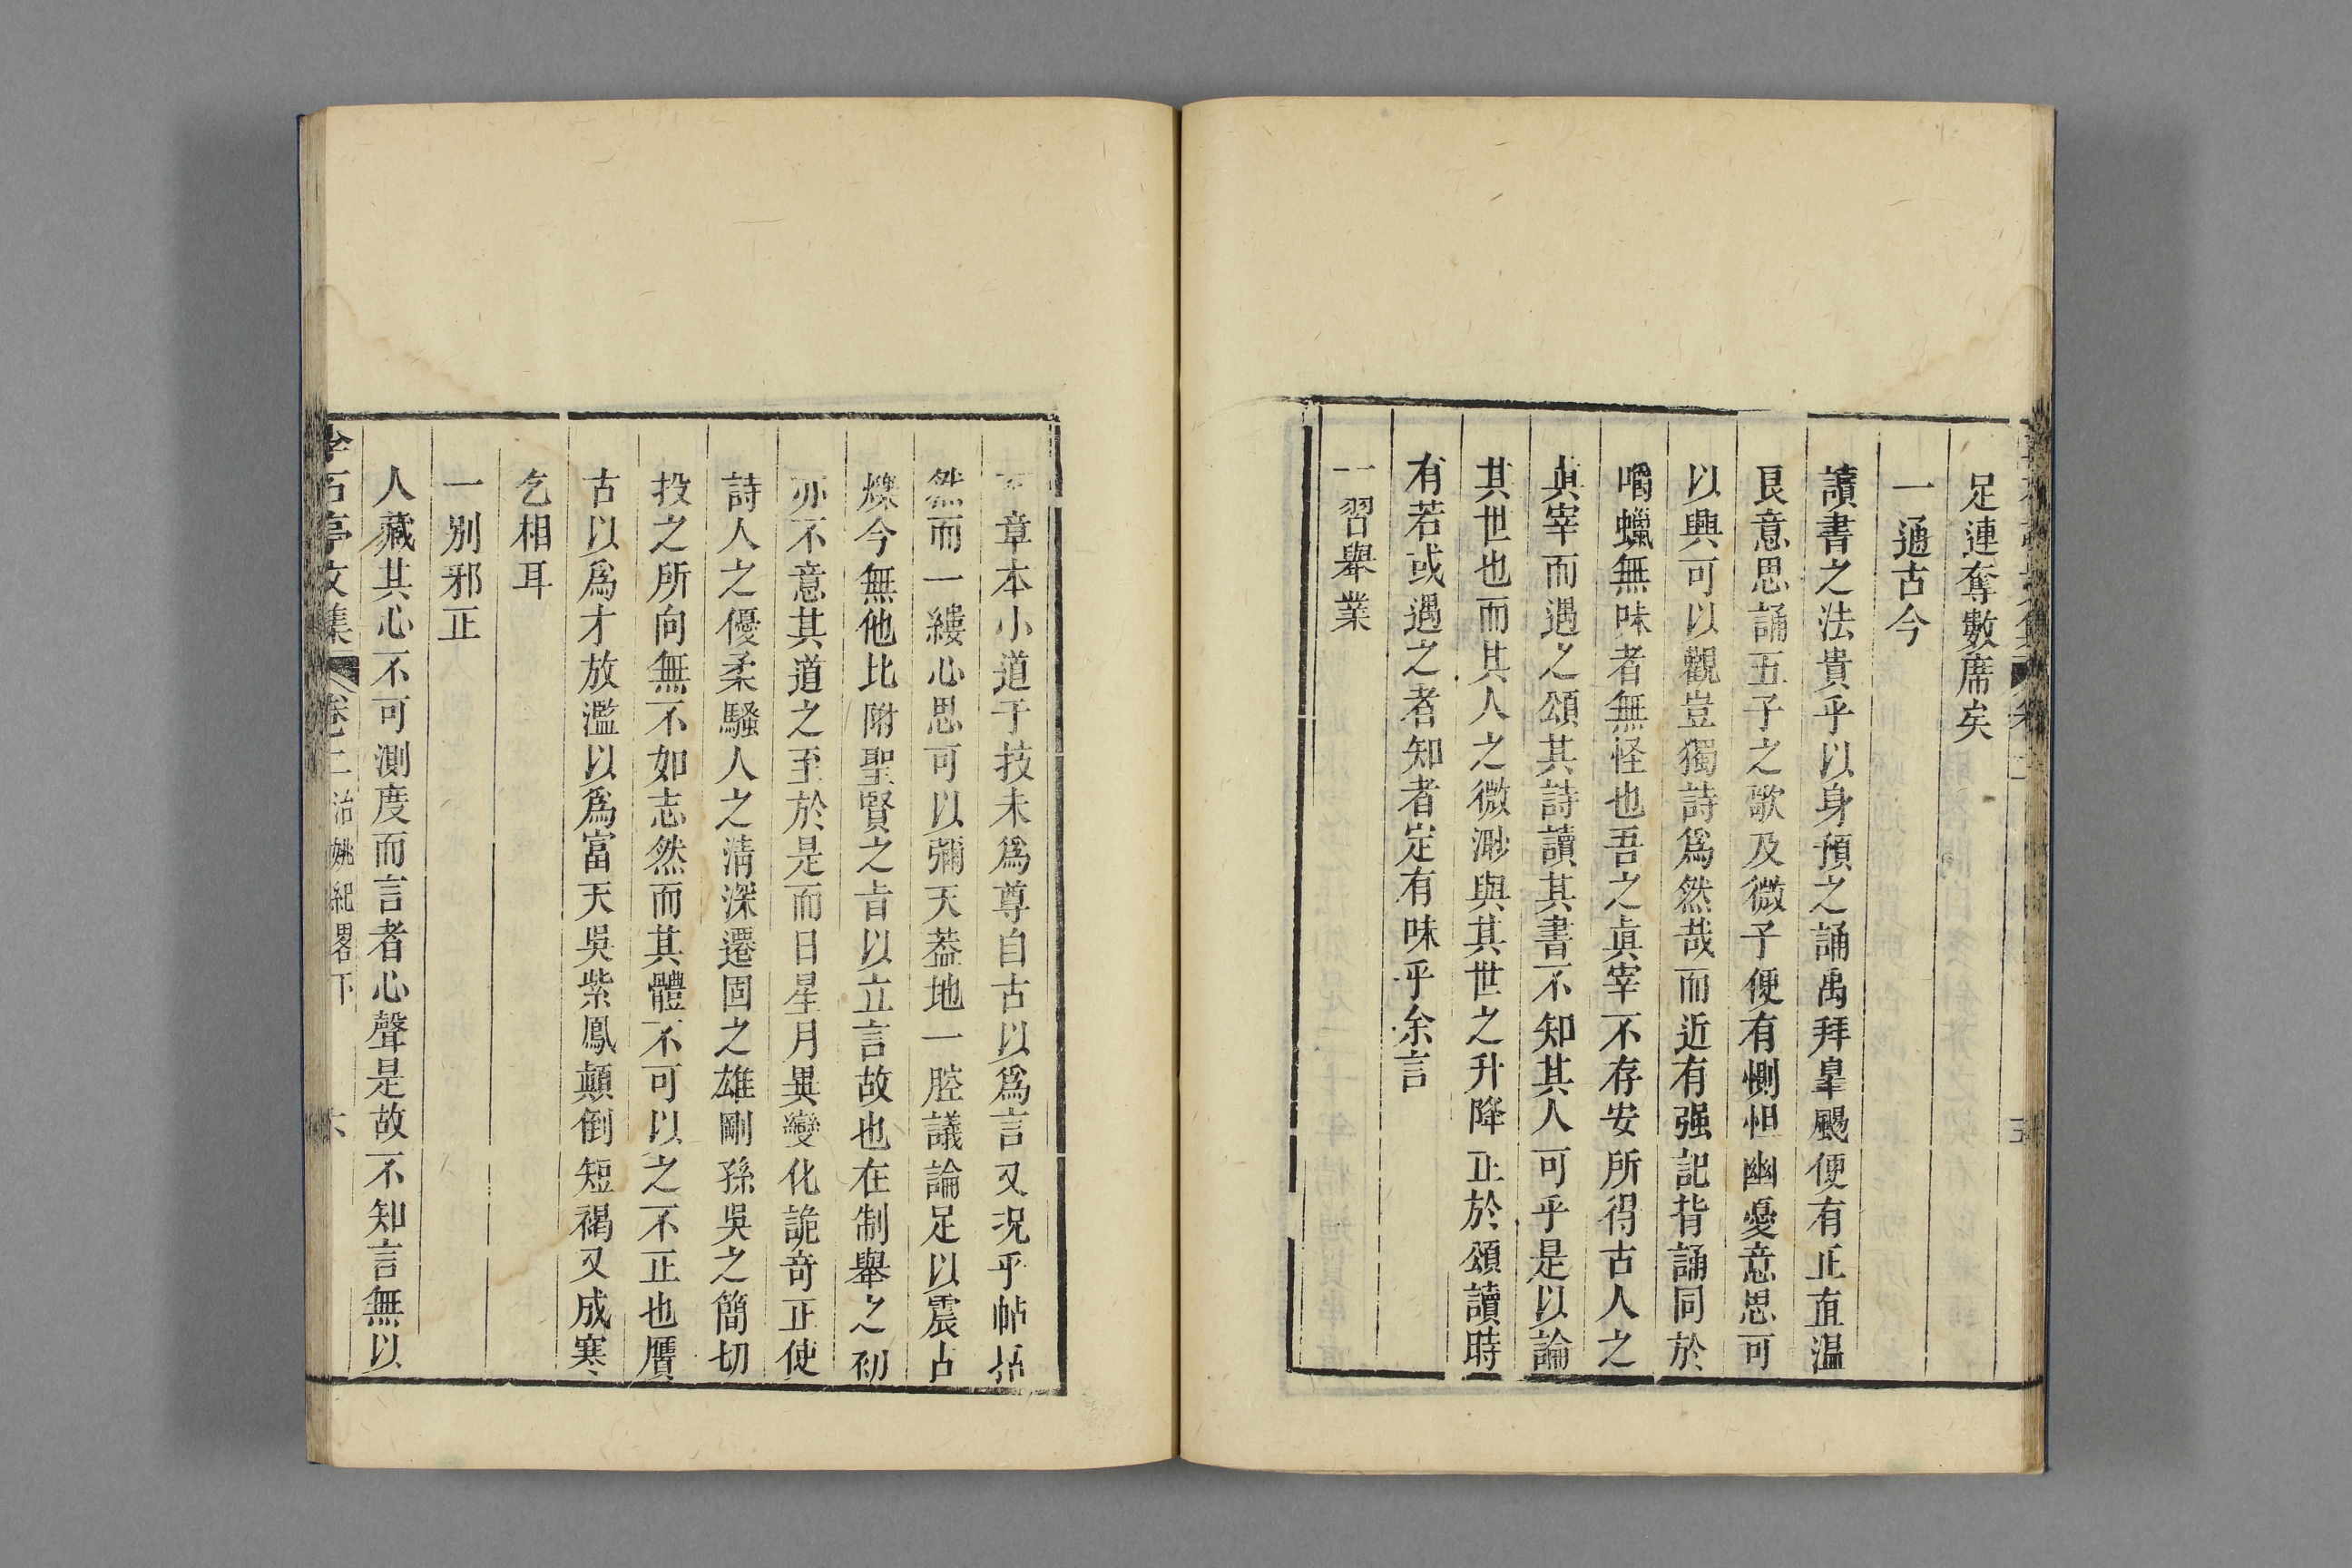 足連奪數席矣
一通古今
讀書之法貴乎以身預之誦禹拜臯颺便有正直溫
艮意思誦五子之歌及微子便有惻怛幽憂意思可
以興可以觀豈獨詩爲然哉而近有强記背誦同於
嚼蠟無味者無怪也吾之眞宰不存安所得古人之
眞宰而遇之頌其詩讀其書不知其人可乎是以論
其世也而其人之微渺與其世之升降正於頌讀時
有若或遇之者知者定有味乎余言
一習舉業
章本小道于技未爲尊自古以爲言又况乎帖括
然而一縷心思可以彌天葢地一腔議論足以震古
爍今無他比附聖賢之㫖以立言故也在制舉之初
亦不意其道之至於是而日星月異變化詭奇正使
詩人之優柔騷人之淸深遷固之雄剛孫吳之簡切
投之所向無不如志然而其體不可以之不正也贋
古以爲才放濫以爲富天吳紫鳳顚倒短褐又成寒
乞相耳
一別邪正
人藏其心不可測度而言者心聲是故不知言無以
石亭文集 卷二 治姚紀畧下 六